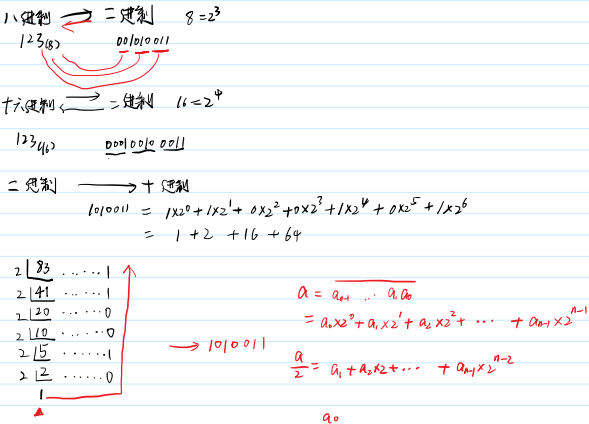 八进制 ⇄ 二进制 8=2³
123(8) 001010011
十六进制 ⇄ 二进制 16=2⁴
123(16) 000100100011
二进制 ⟶ 十进制
1010011 = 1×2⁰+1×2¹+0×2²+0×2³+1×2⁴+0×2⁵+1×2⁶
= 1+2+16+64
2 83 ……1
2 41 ……1
2 20 ……0
2 10 ……0
2 5 ……1
2 2 ……0
1
→ 1010011
a = aₙ₋₁ … a₁a₀
= a₀×2⁰+a₁×2¹+a₂×2²+ … + aₙ₋₁×2ⁿ⁻¹
a/2 = a₁+a₂×2+… + aₙ₋₁×2ⁿ⁻²
a₀